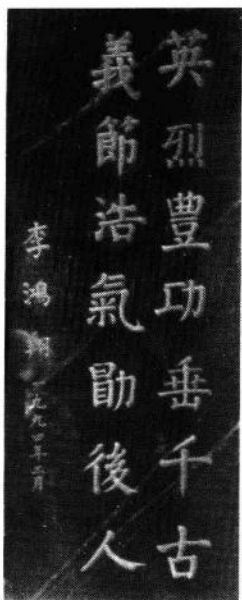 英烈豐功垂千古
義節浩氣勖後人
李鴻翔 一九九四年三月